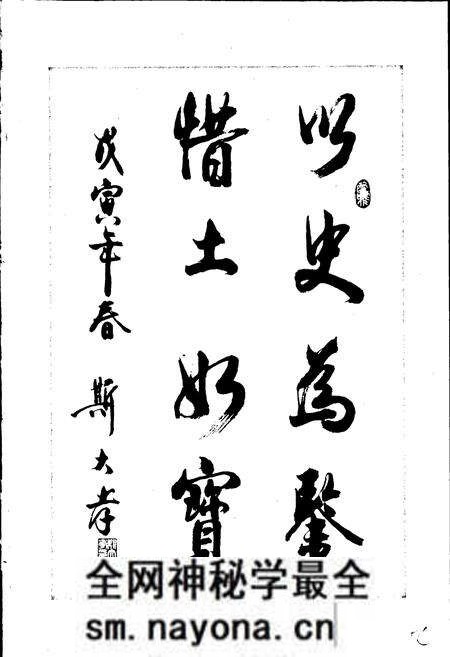 以史為鑒
惜土如寶
戊寅年春 斯大孝
全网神秘学最全
sm.nayona.cn